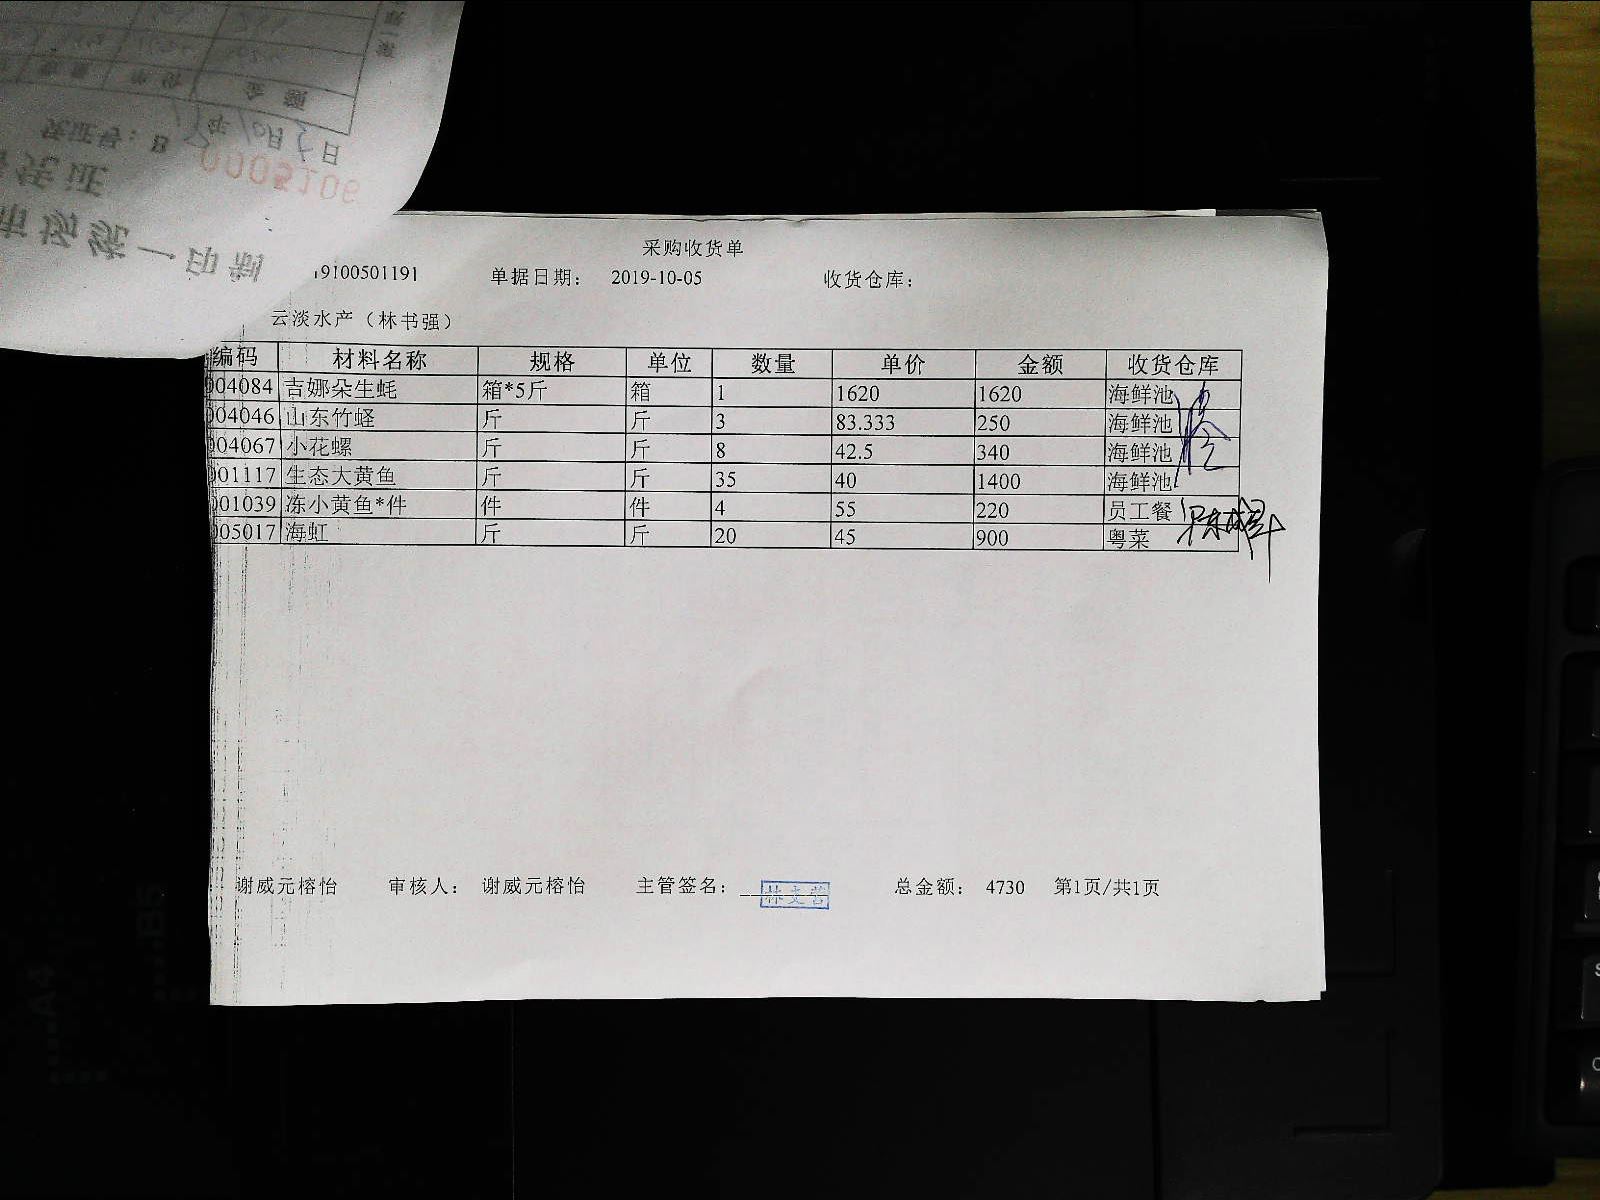 凭证号：B
年10月3日
0005106
凭证
市场统一印制
采购收货单
19100501191 单据日期： 2019-10-05 收货仓库：
云淡水产（林书强）
编码 材料名称 规格 单位 数量 单价 金额 收货仓库
004084 吉娜朵生蚝 箱*5斤 箱 1 1620 1620 海鲜池
004046 山东竹蛏 斤 斤 3 83.333 250 海鲜池
004067 小花螺 斤 斤 8 42.5 340 海鲜池
001117 生态大黄鱼 斤 斤 35 40 1400 海鲜池
001039 冻小黄鱼*件 件 件 4 55 220 员工餐
005017 海虹 斤 斤 20 45 900 粤菜
谢威元榕怡 审核人： 谢威元榕怡 主管签名： 总金额： 4730 第1页/共1页